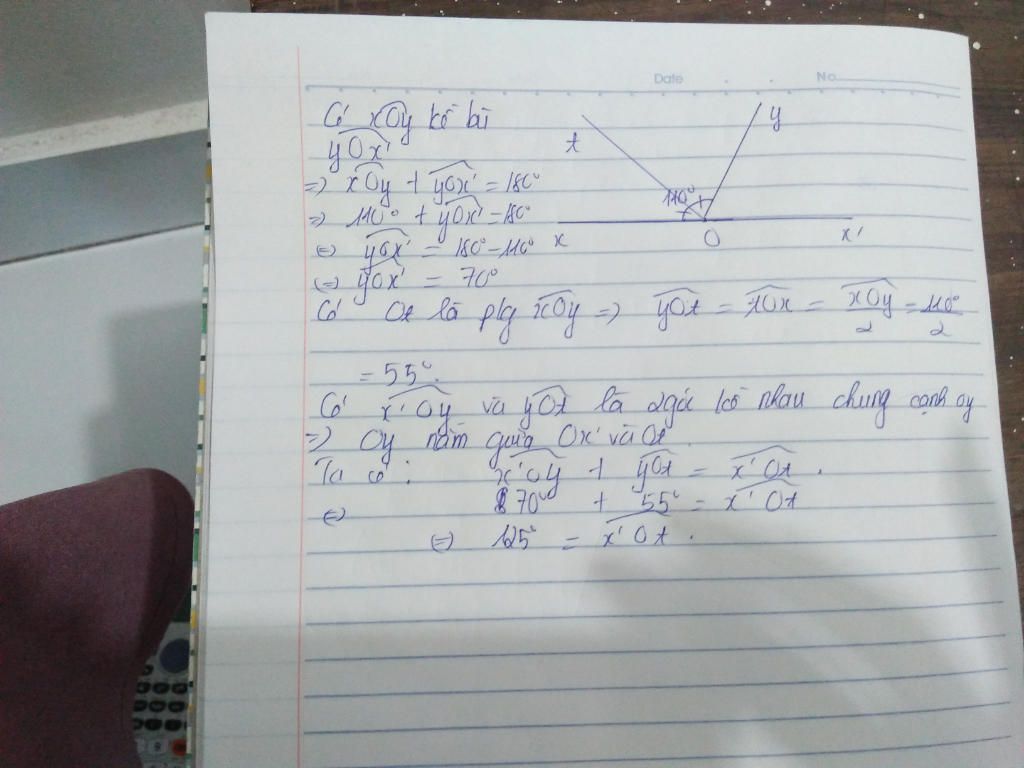 Date No
Có xOy kề bù
yOx'
=> xOy + yOx' = 180°
=> 110° + yOx' = 180°
<=> yOx' = 180° - 110°
<=> yOx' = 70°
t
y
110°
x
O
x'
Có Ot là p/g xOy => yOt = tOx = xOy/2 = 110°/2
= 55°.
Có x'Oy và yOt là 2 góc kề nhau chung cạnh oy
=> Oy nằm giữa Ox' và Ot.
Ta có: x'Oy + yOt = x'Ot.
<=> 70° + 55° = x'Ot
<=> 125° = x'Ot.